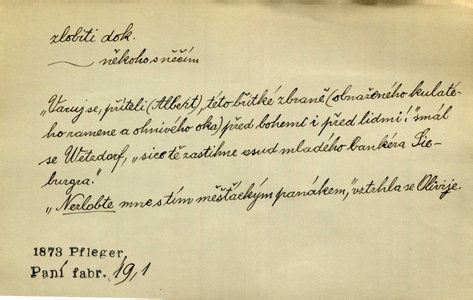 zlobiti dok.
někoho s něčím
„Varuj se, příteli (Albert), této břitké zbraně (obnaženého kulaté-
ho ramene a ohnivého oka) před bohemi i před lidmi!" smál
se Wetzdorf, „sice tě zastihne osud mladého bankéra Sie-
burgra."
„Nezlobte mne s tím měšťáckým panákem," vztrhla se Olivije.
1873 Pfleger,
Paní fabr. 19,1